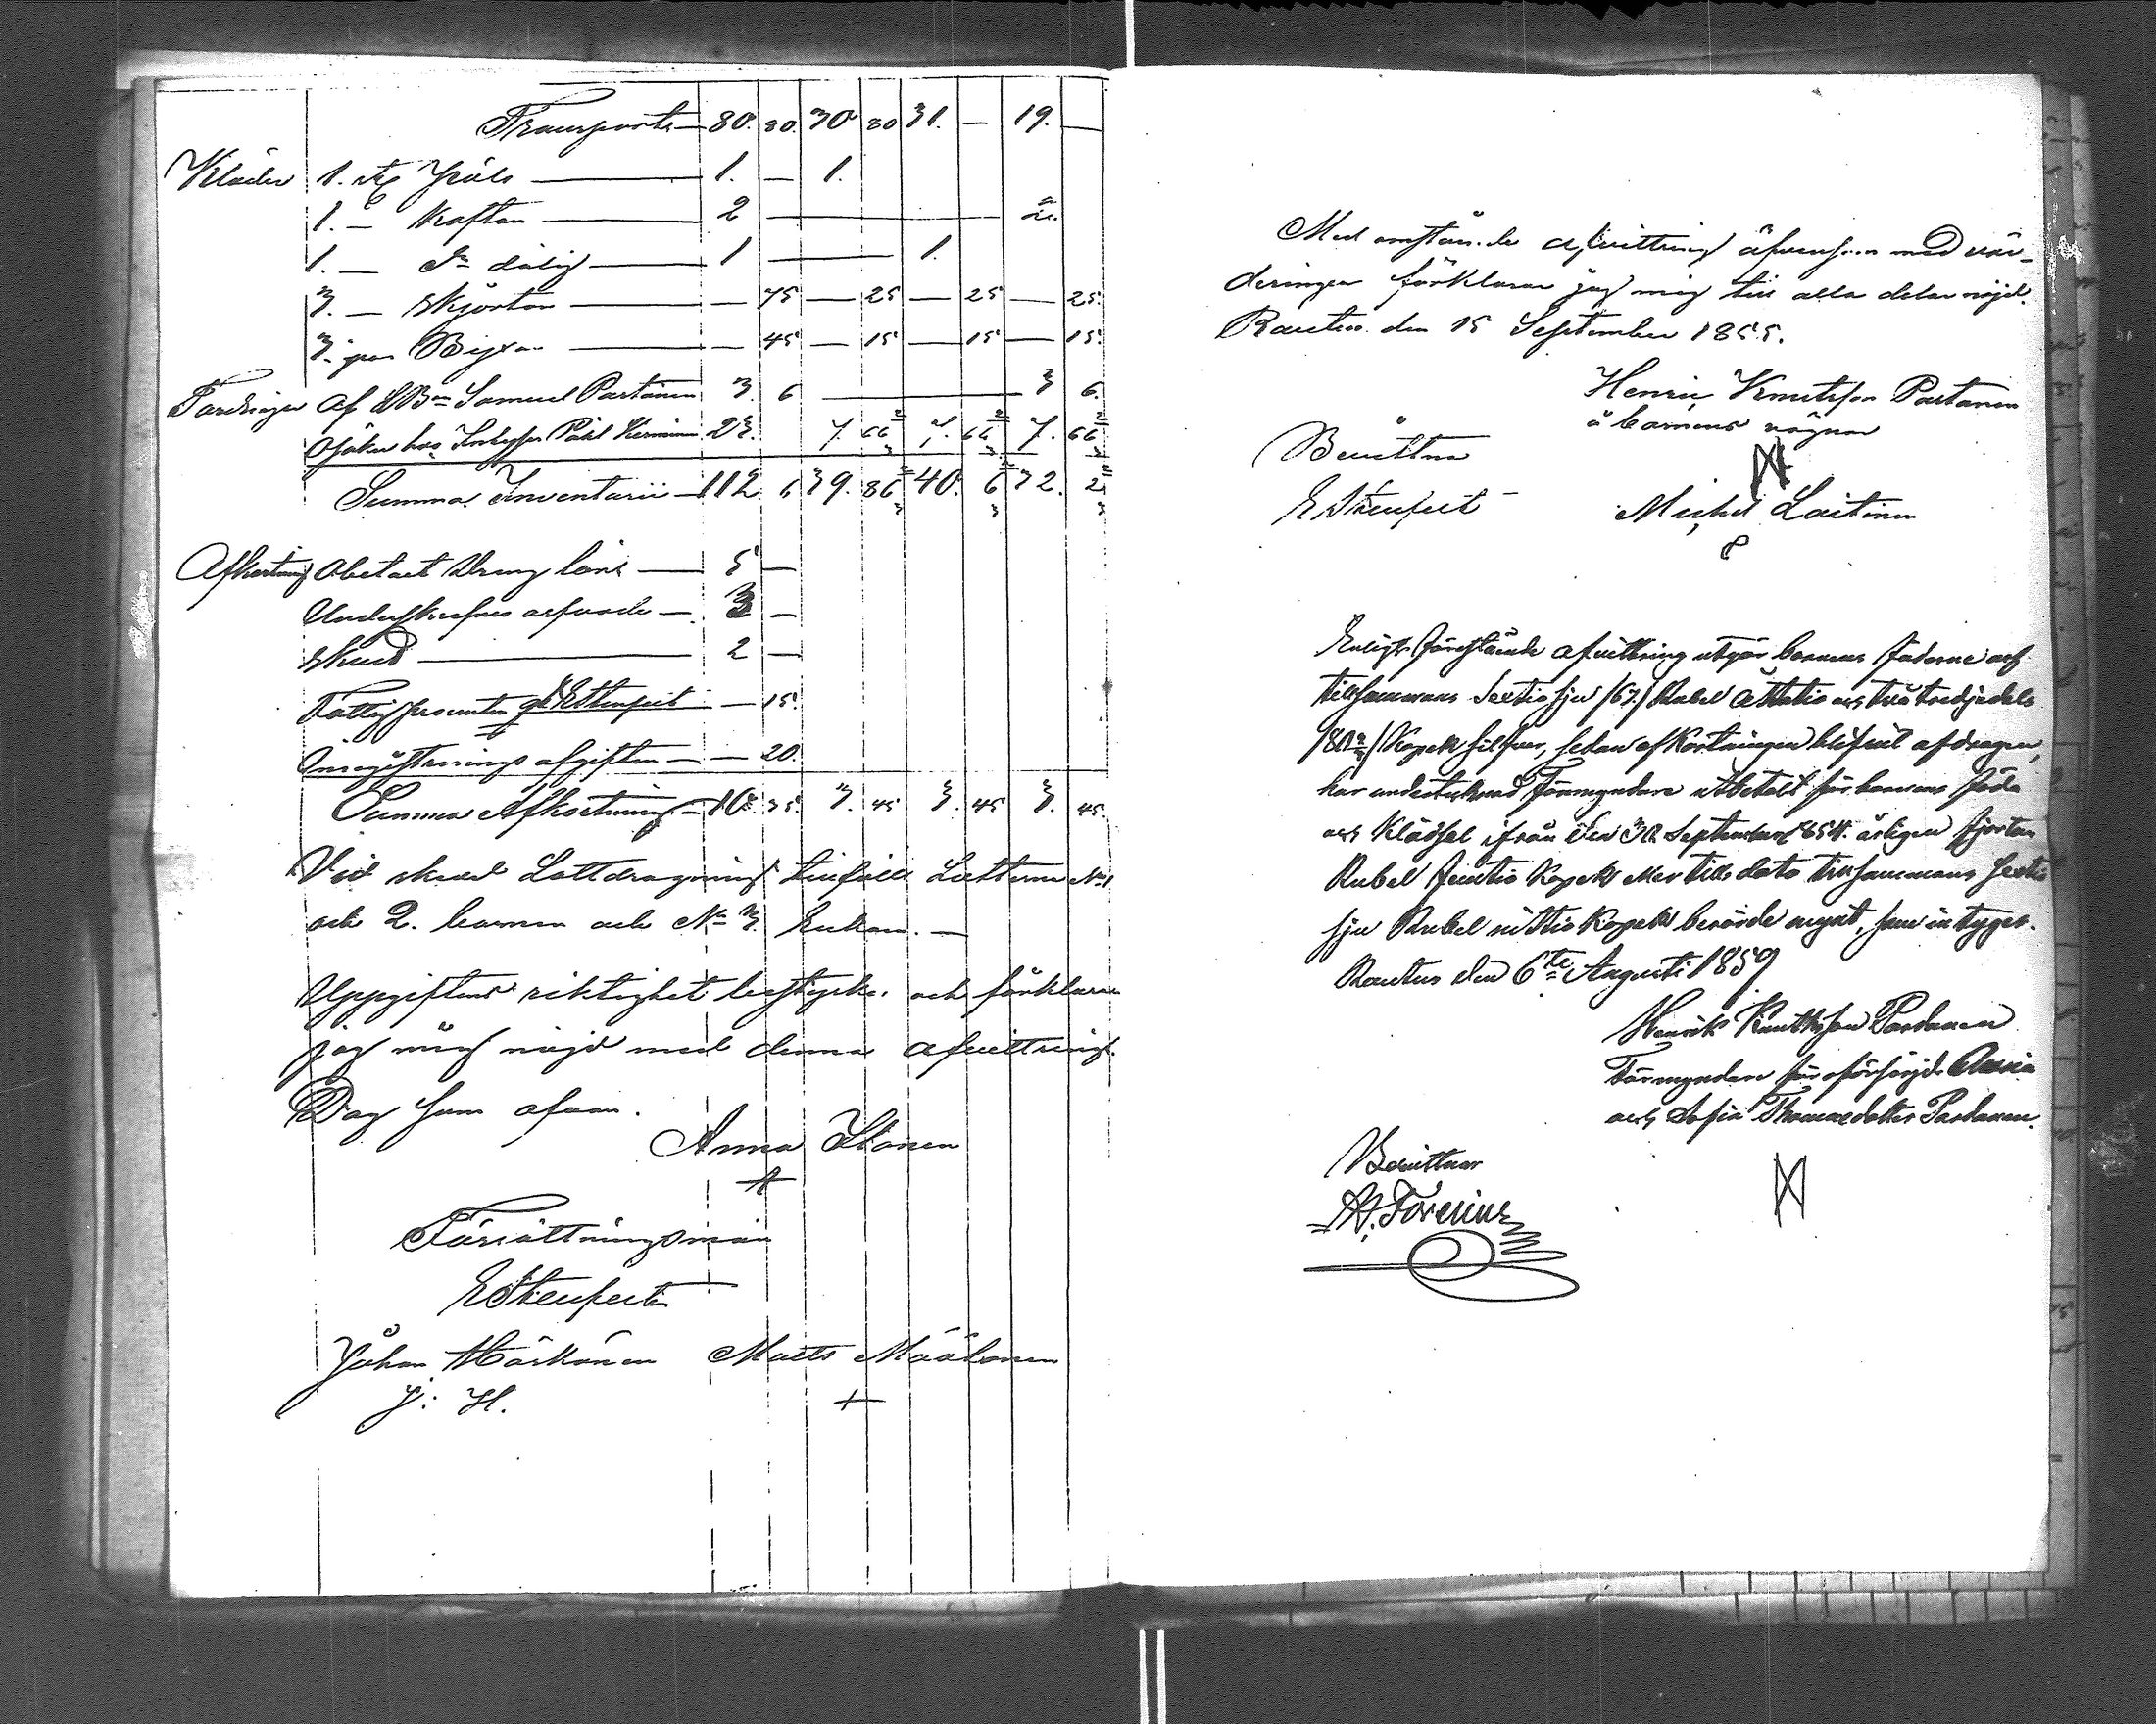 Transport — 80. 80. 30 80 31. — 19. —
Kläder 1. st. Päls — 1. — 1.
1. — Kaftan — 2 — 2.
1. — Do dålig — 1 — 1.
3. — Skjortor — — 75 — 25 — 25 — 25.
3. par Byxor — — 45 — 15 — 15 — 15.
Fordringar af Samuel Partanen 3. 6 — 3 6.
hos Påhl 23. 7. 66 2/3 7. 66 2/3 7. 66 2/3
Summa Inventarii — 112. 6 39. 86 2/3 40. 6 2/3 32. 2/3
Afkortning Obetalt Dräng lön — 5 —
Underskrefnes arfvode — 3 —
Skuld — 2 —
Fattigprocenten — 15.
Inregistrerings afgiften — — 20.
Summa Afkortning — 10. 35. 3. 45 3. 45 3. 45.
Vid skedd Lottdragning tillföll Lotterna No 1
och 2. barnen och No 3. Enkan. —
Uppgiftens riktighet bestyrkes och förklarar
jag mig nöjd med denna afvittring.
Dag som ofvan.
Anna Itonen
Förrättningsman
E Stenfelt
Johan Härkönen Matts Määtänen
J: H.
Med omstående afvittring äfvensom med vär-
deringen förklarar jag mig till alla delar nöjd.
Rautus den 15 September 1855.
Henric Knutsson Partanen
å barnens vägnar
Bevittna
E Stenfelt Michel Laitinen
Enligt förestående afvittring utgör barnens fäderne arf
tillsammans Sextiosju /67./ Rubel åttatio och två tredjedels
/80 2/3/ Kopek silfver, sedan afkortningen blifvit afdragen,
har undertecknad Förmyndare utbetalt för barnens föda
och Klädsel ifrån den 30 September 1854. årligen fjorton
Rubel femtio Kopek eller till dato tillsammans Sextio
sju Rubel nittio Kopek berörde mynt, som intygas.
Rautus den 6te Augusti 1859
Henrik Knutsson Pardanen
Förmyndare för oförsörjda Anna
och Sofia Thomasdotter Pardanen.
Bevittnar
A. Forenius